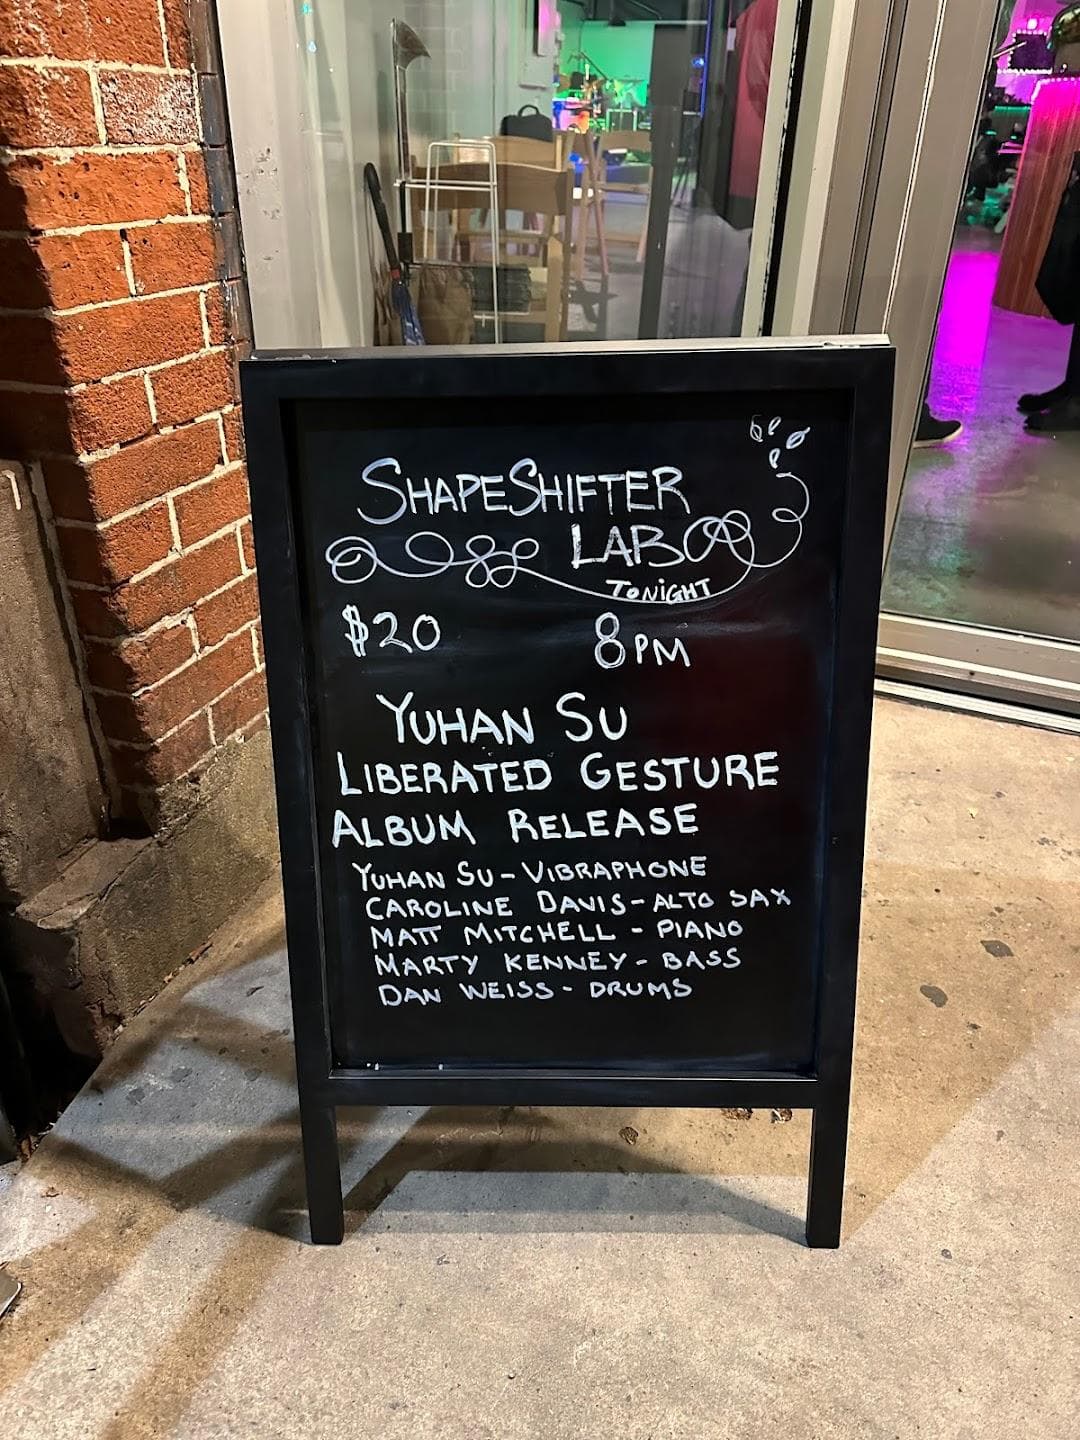 SHAPESHIFTER
LAB
TONIGHT
$20 8PM
YUHAN SU
LIBERATED GESTURE
ALBUM RELEASE
YUHAN SU - VIBRAPHONE
CAROLINE DAVIS - ALTO SAX
MATT MITCHELL - PIANO
MARTY KENNEY - BASS
DAN WEISS - DRUMS